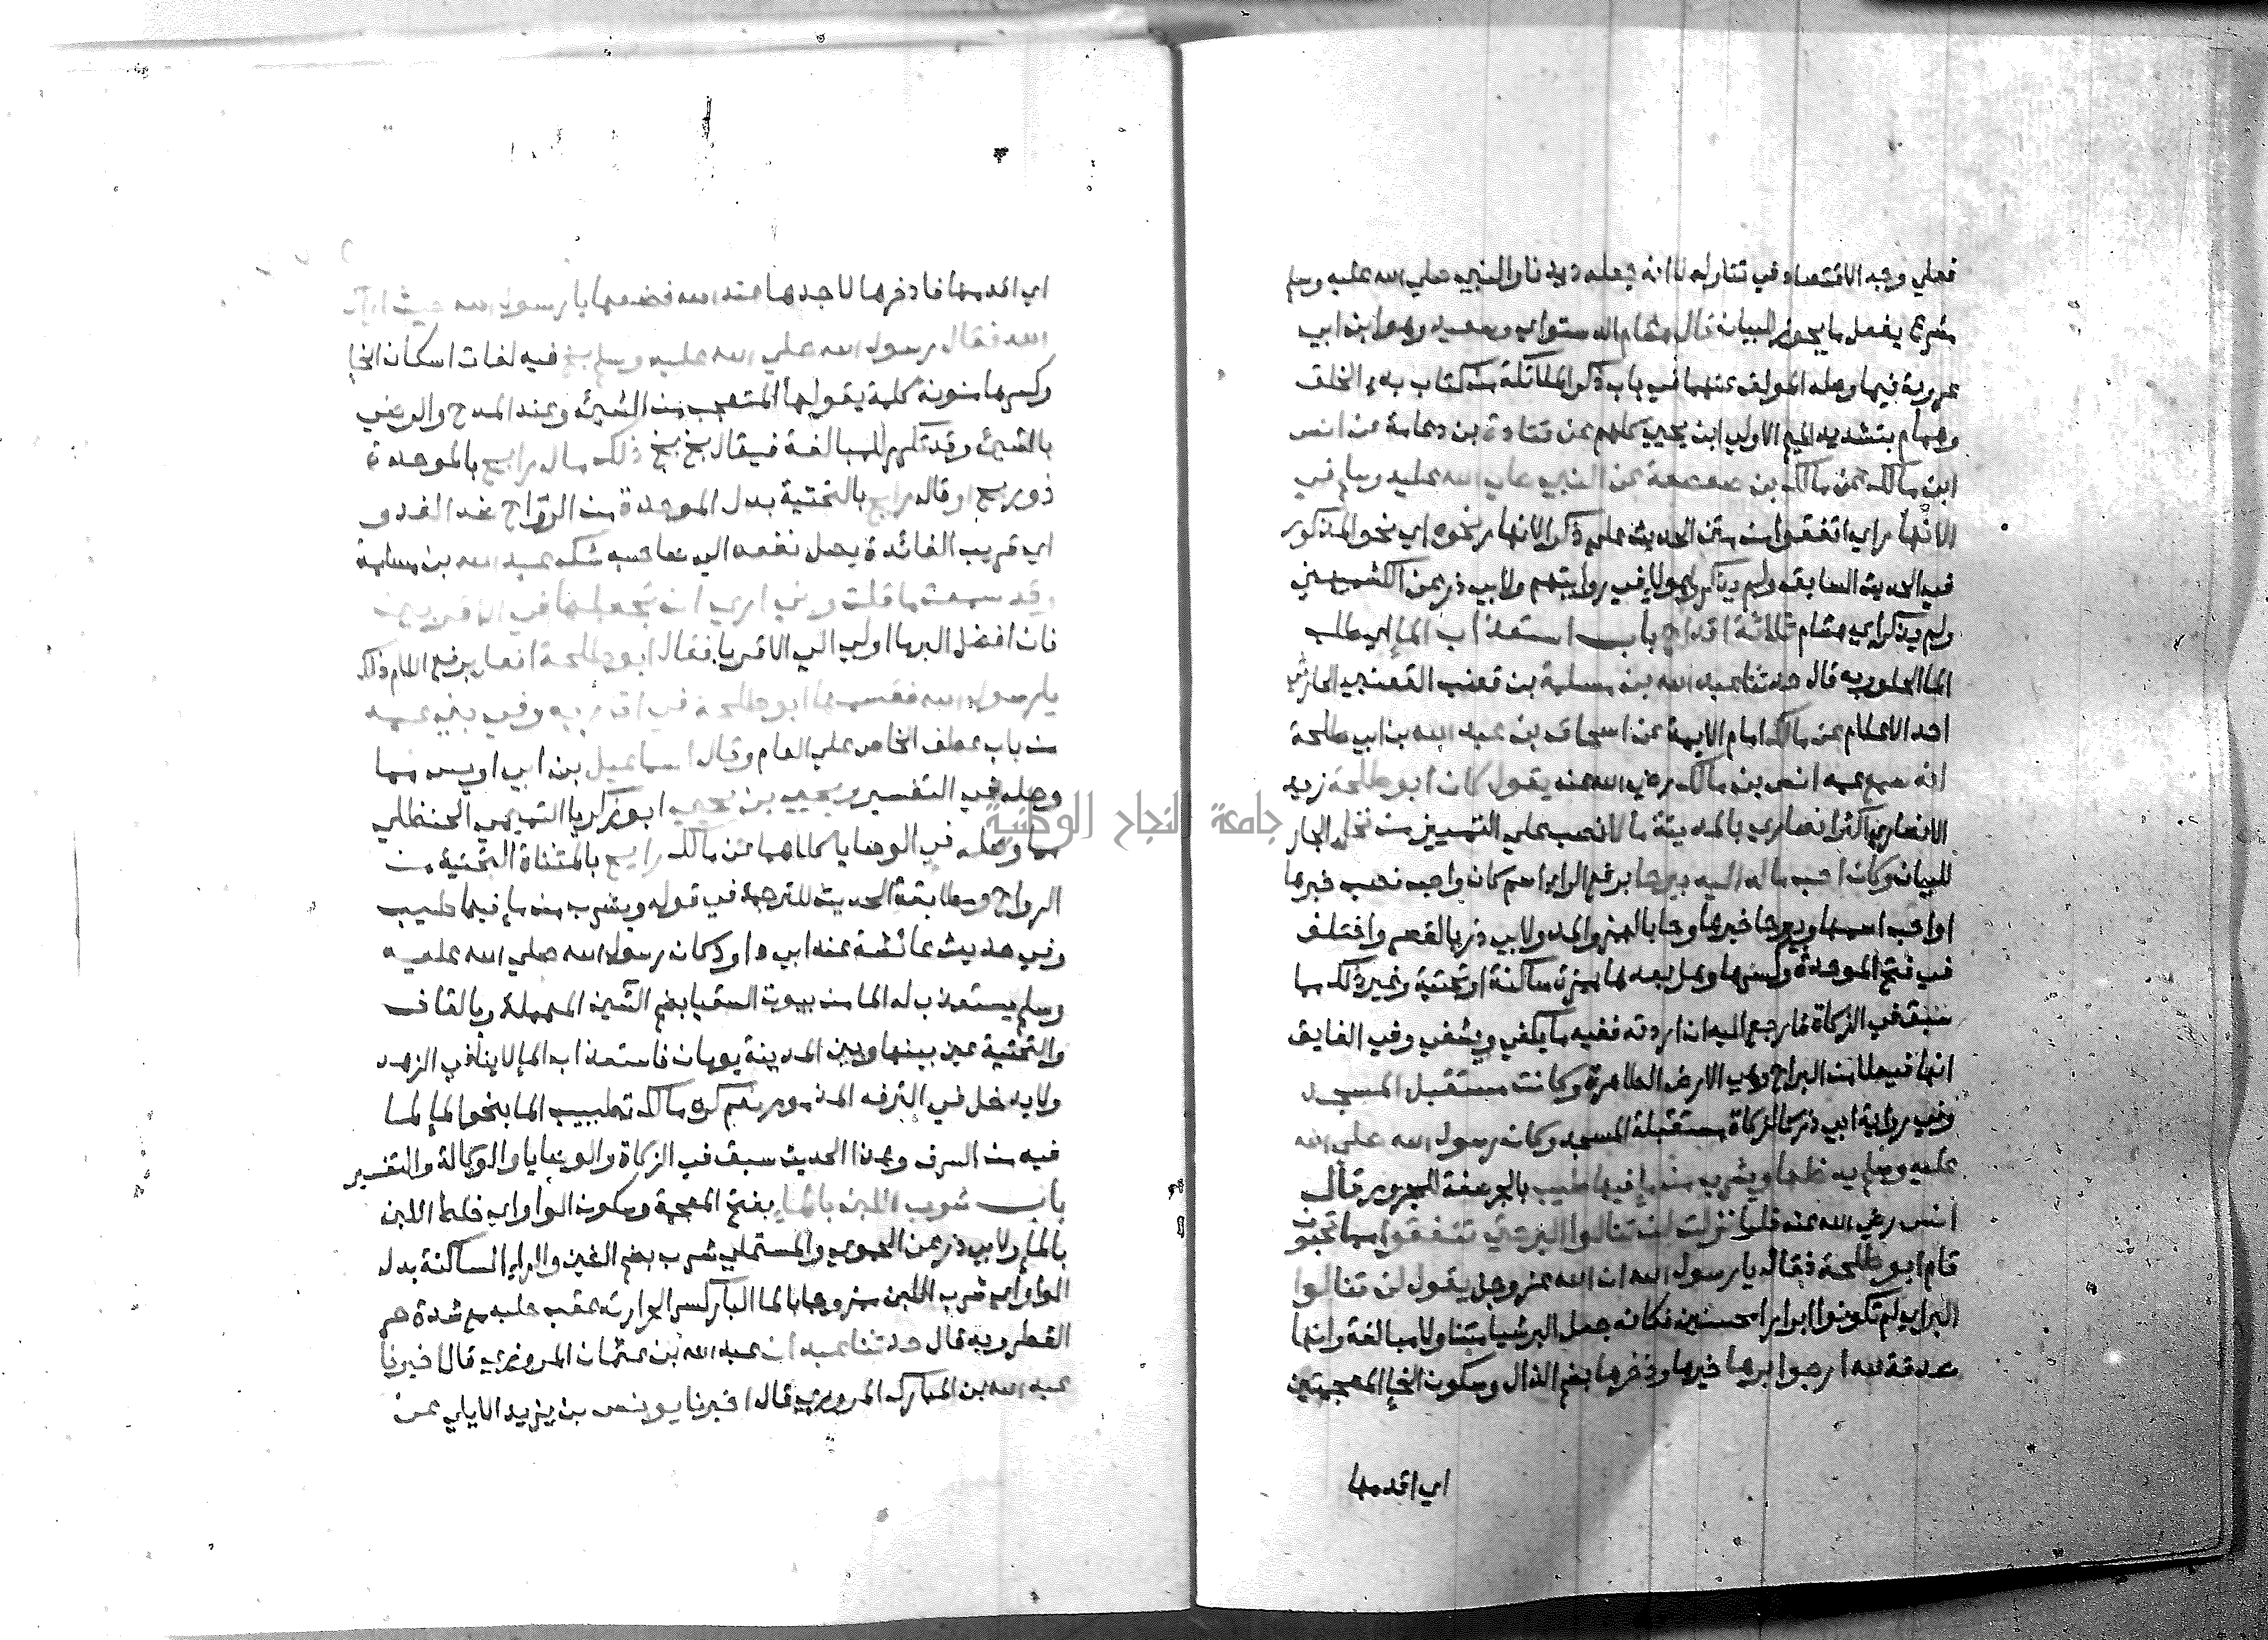 فعلي وجه الاقتصاد في تناوله لا انه جعله ديدنا والنبي صلي الله عليه وسلم
مشرع يفعل ما يجوز للبيان قال هشام الدستواي وسعيد وهو ابن ابي
عروبة فيما وصله المولف عنهما في باب ذكر الملائكة من كتاب بدء الخلق
وهمام بتشديد الميم الاولي ابن يحيي كلهم عن قتادة بن دعامة عن انس
ابن مالك عن مالك بن صعصعة عن النبي صلي الله عليه وسلم في
الانهار اي اتفقوا من متن الحديث علي ذكر الانهار نحوه اي نحو المذكور
في الحديث السابق ولم يذكروا هولاء في روايتهم ولابي ذر عن الكشميهني
ولم يذكر اي هشام ثلاثة اقداح باب استعذاب الماء اي طلب
الماء الحلو وبه قال حدثنا عبد الله بن مسلمة بن قعنب القعنبي الحارثي
احد الاعلام عن مالك امام الايمة عن اسحاق بن عبد الله بن ابي طلحة
انه سمع عمه انس بن مالك رضي الله عنه يقول كان ابو طلحة زيد
الانصاري اكثر انصاري بالمدينة مالا نصب علي التمييز من نخل الجار
للبيان وكان احب ماله اليه بيرحا برفع الراء اسم كان واحب نصب خبرها
او احب اسمها وبيرحا خبرها وحا بالهمز والمد ولابي ذر بالقصر واختلف
في فتح الموحدة وكسرها وهل بعدها همزة ساكنة او تحتية وغير ذلك مما
سبق في الزكاة فارجع اليه ان اردته ففيه ما يكفي ويشفي وفي الفايق
انها فيعلا من البراح وهي الارض الظاهرة وكانت مستقبل المسجد
وفي رواية ابي ذر كالزكاة مستقبلة المسجد وكان رسول الله صلي الله
عليه وسلم يدخلها ويشرب من ماء فيها طيب بالجر صفة للمجرور قال
انس رضي الله عنه فلما نزلت لن تنالوا البر حتي تنفقوا مما تحبون
قام ابو طلحة فقال يا رسول الله ان الله عز وجل يقول لن تنالوا
البر اي لم تكونوا ابرارا محسنين فكانه جعل البر شيا متناولا مبالغة وانها
صدقة لله ارجوا برها خيرها وذخرها بضم الذال وسكون الخاء المعجمتين
اي اقدمها
اي اقدمها فادخرها لاجدها عند الله فضعها يا رسول الله حيث اراك
الله فقال رسول الله صلي الله عليه وسلم بخ فيه لغات اسكان الخاء
وكسرها منونة كلمة يقولها المتعجب من الشيء وعند المدح والرضي
بالشيء وقد تكرر للمبالغة فيقال بخ بخ ذلك مال رابح بالموحدة
ذو ربح او قال رايح بالتحتية بدل الموحدة من الرواح ضد الغدو
اي قريب الفائدة يصل نفعه الي صاحبه شك عبد الله بن مسلمة
وقد سمعت ما قلت وني اري ان تجعلها في الاقربين
فان افضل البر ما اولي الي الاقربا فقال ابو طلحة افعل برفع اللام ذلك
يا رسول الله فقسمها ابو طلحة في اقاربه وفي بني عمه
من باب عطف الخاص علي العام وقال اسماعيل بن ابي اويس مما
وصله في التفسير ويحيي بن يحيي ابو زكريا التميمي الحنظلي
مما وصله في الوصايا كلاهما عن مالك رايح بالمثناة التحتية من
الرواح ومطابقة الحديث للترجمة في قوله ويشرب من ماء فيها طيب
وفي حديث عائشة عند ابي داود كان رسول الله صلي الله عليه
وسلم يستعذب له الماء من بيوت السقيا بضم السين المهملة وبالقاف
والتحتية عين بينها وبين المدينة يومان فاستعذاب الماء لا ينافي الزهد
ولا يدخل في الترفه المذموم نعم كره مالك تطييب الماء بنحو الماء لما
فيه من السرف وهذا الحديث سبق في الزكاة والوصايا والوكالة والتفسير
باب شوب اللبن بالماء بفتح المعجمة وسكون الواو اي خلط اللبن
بالماء ولابي ذر عن الحموي والمستملي شرب بضم الغين والراء الساكنة بدل
الواو اي شرب اللبن ممزوجا بالماء البارد كسر الحرارته عقب حلبه مع شدة حر
القطر وبه قال حدثنا عبدان عبد الله بن عثمان المروزي قال اخبرنا
عبد الله بن المبارك المروزي قال اخبرنا يونس بن يزيد الايلي عن
جامعة النجاح الوطنية